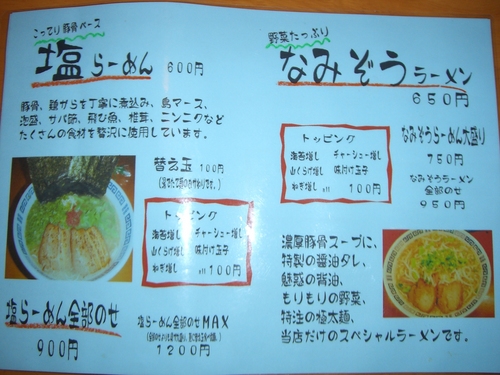 こってり豚骨ベース
塩らーめん 600円
豚骨、鶏がらを丁寧に煮込み、島マース、
泡盛、サバ節、飛び魚、椎茸、ニンニクなど
たくさんの食材を贅沢に使用しています。
替え玉 100円
トッピング
海苔増し チャーシュー増し
山くらげ増し 味付け玉子
ねぎ増し 各100円
塩らーめん全部のせ
900円
塩らーめん全部のせMAX
1200円
野菜たっぷり
なみぞうラーメン
650円
トッピング
海苔増し チャーシュー増し
山くらげ増し 味付け玉子
ねぎ増し 100円
なみぞうらーめん大盛り
750円
なみぞうラーメン
全部のせ
950円
濃厚豚骨スープに、
特製の醤油タレ、
魅惑の背油、
もりもりの野菜、
特注の極太麺、
当店だけのスペシャルラーメンです。